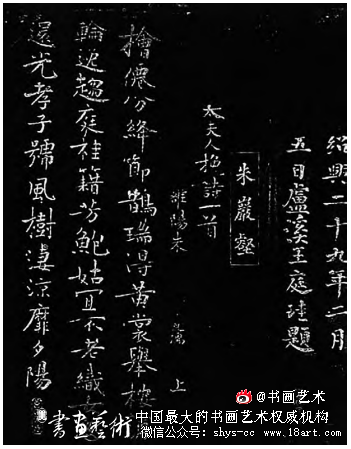 紹興二十九年二月
五日盧溪王庭珪題
朱巖壑
太夫人挽詩一首
睢陽朱 上
分絳節鵲瑞得黃裳舉
輪 籍芳鮑姑宜不老織
還光孝子號風樹淒涼靡夕陽
@书画艺术
書画藝術
中国最大的书画艺术权威机构
微信公众号：shys-cc www.18art.com